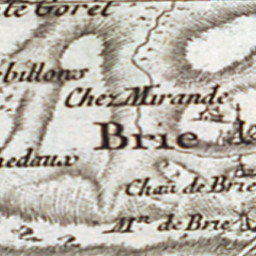 te Goret
billons
Chez Mirande
Brie
nedaux
Chau de Brie
Mn de Brie